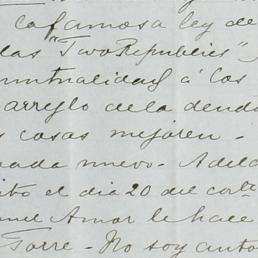 la famosa ley de
las "Two Republics"
puntualidad á los
arreglo de la deuda
s cosas mejoren -
nada nuevo - Adela
ibo el dia 20 del
Amor le hace
Torre - No soy auto